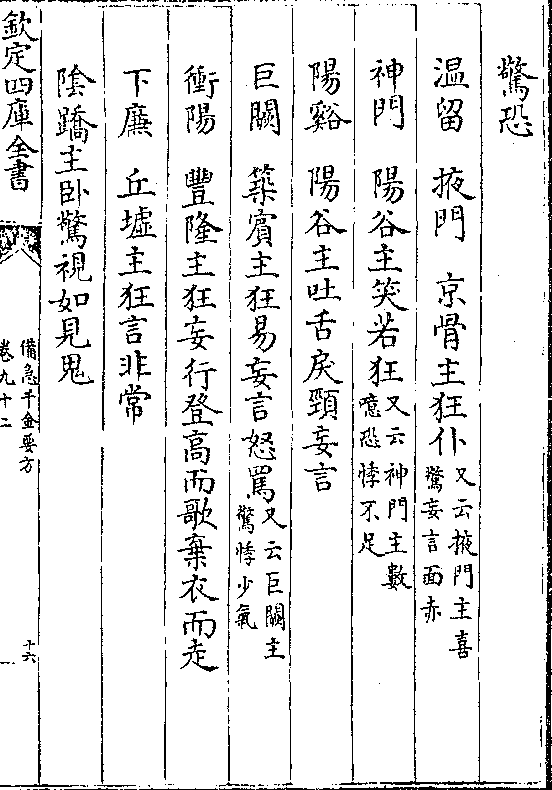 驚恐
温留　掖門　京骨主狂仆又云掖門主喜驚妄言面赤
神門　陽谷主笑若狂又云神門主數噫恐悸不足
陽谿　陽谷主吐舌戾頸妄言
巨闕　築賓主狂易妄言怒罵又云巨闕主驚悸少氣
衝陽　豐隆主狂妄行登高而歌棄衣而走
下廉　丘墟主狂言非常
陰蹻主卧驚視如見鬼
欽定四庫全書
備急千金要方
卷九十二
十六